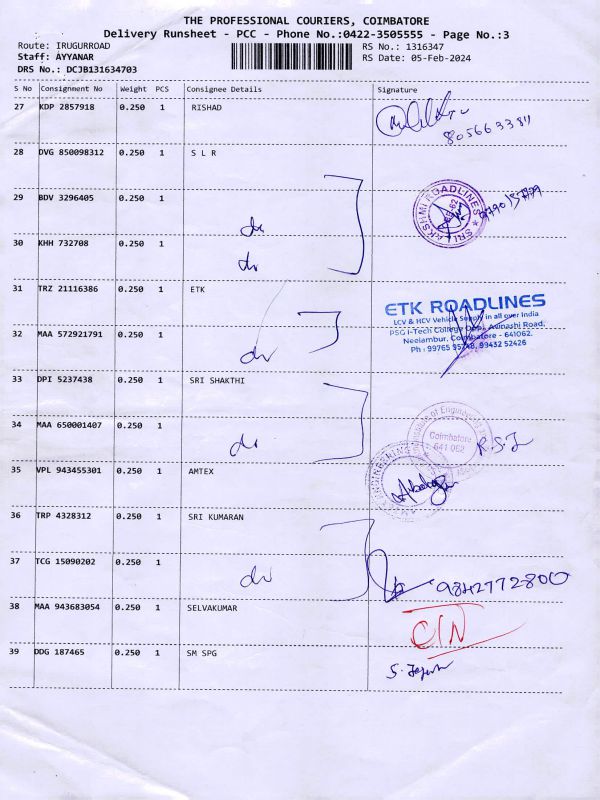 THE PROFESSIONAL COURIERS, COIMBATORE
Delivery Runsheet - PCC - Phone No.:0422-3505555 - Page No.:3
Route: IRUGURROAD RS No.: 1316347
Staff: AYYANAR RS Date: 05-Feb-2024
DRS No.: DCJB131634703
S No Consignment No Weight PCS Consignee Details Signature
27 KDP 2857918 0.250 1 RISHAD
8056633811
28 DVG 850098312 0.250 1 S L R
29 BDV 3296405 0.250 1
do
SRI LAKSHMI ROADLINES
30 KHH 732708 0.250 1
do
31 TRZ 21116386 0.250 1 ETK
ETK ROADLINES
LCV & HCV Vehicle Supply in all over India
PSG I-Tech College Opp., Avinashi Road,
Neelambur, Coimbatore - 641062.
Ph : 99765 95748, 99432 52426
32 MAA 572921791 0.250 1
do
33 DPI 5237438 0.250 1 SRI SHAKTHI
34 MAA 650001407 0.250 1
do
Institute of Engineering
Coimbatore
641 062
35 VPL 943455301 0.250 1 AMTEX
ENGINEERING
36 TRP 4328312 0.250 1 SRI KUMARAN
37 TCG 15090202 0.250 1
do
9842772800
38 MAA 943683054 0.250 1 SELVAKUMAR
CIN
39 DDG 187465 0.250 1 SM SPG